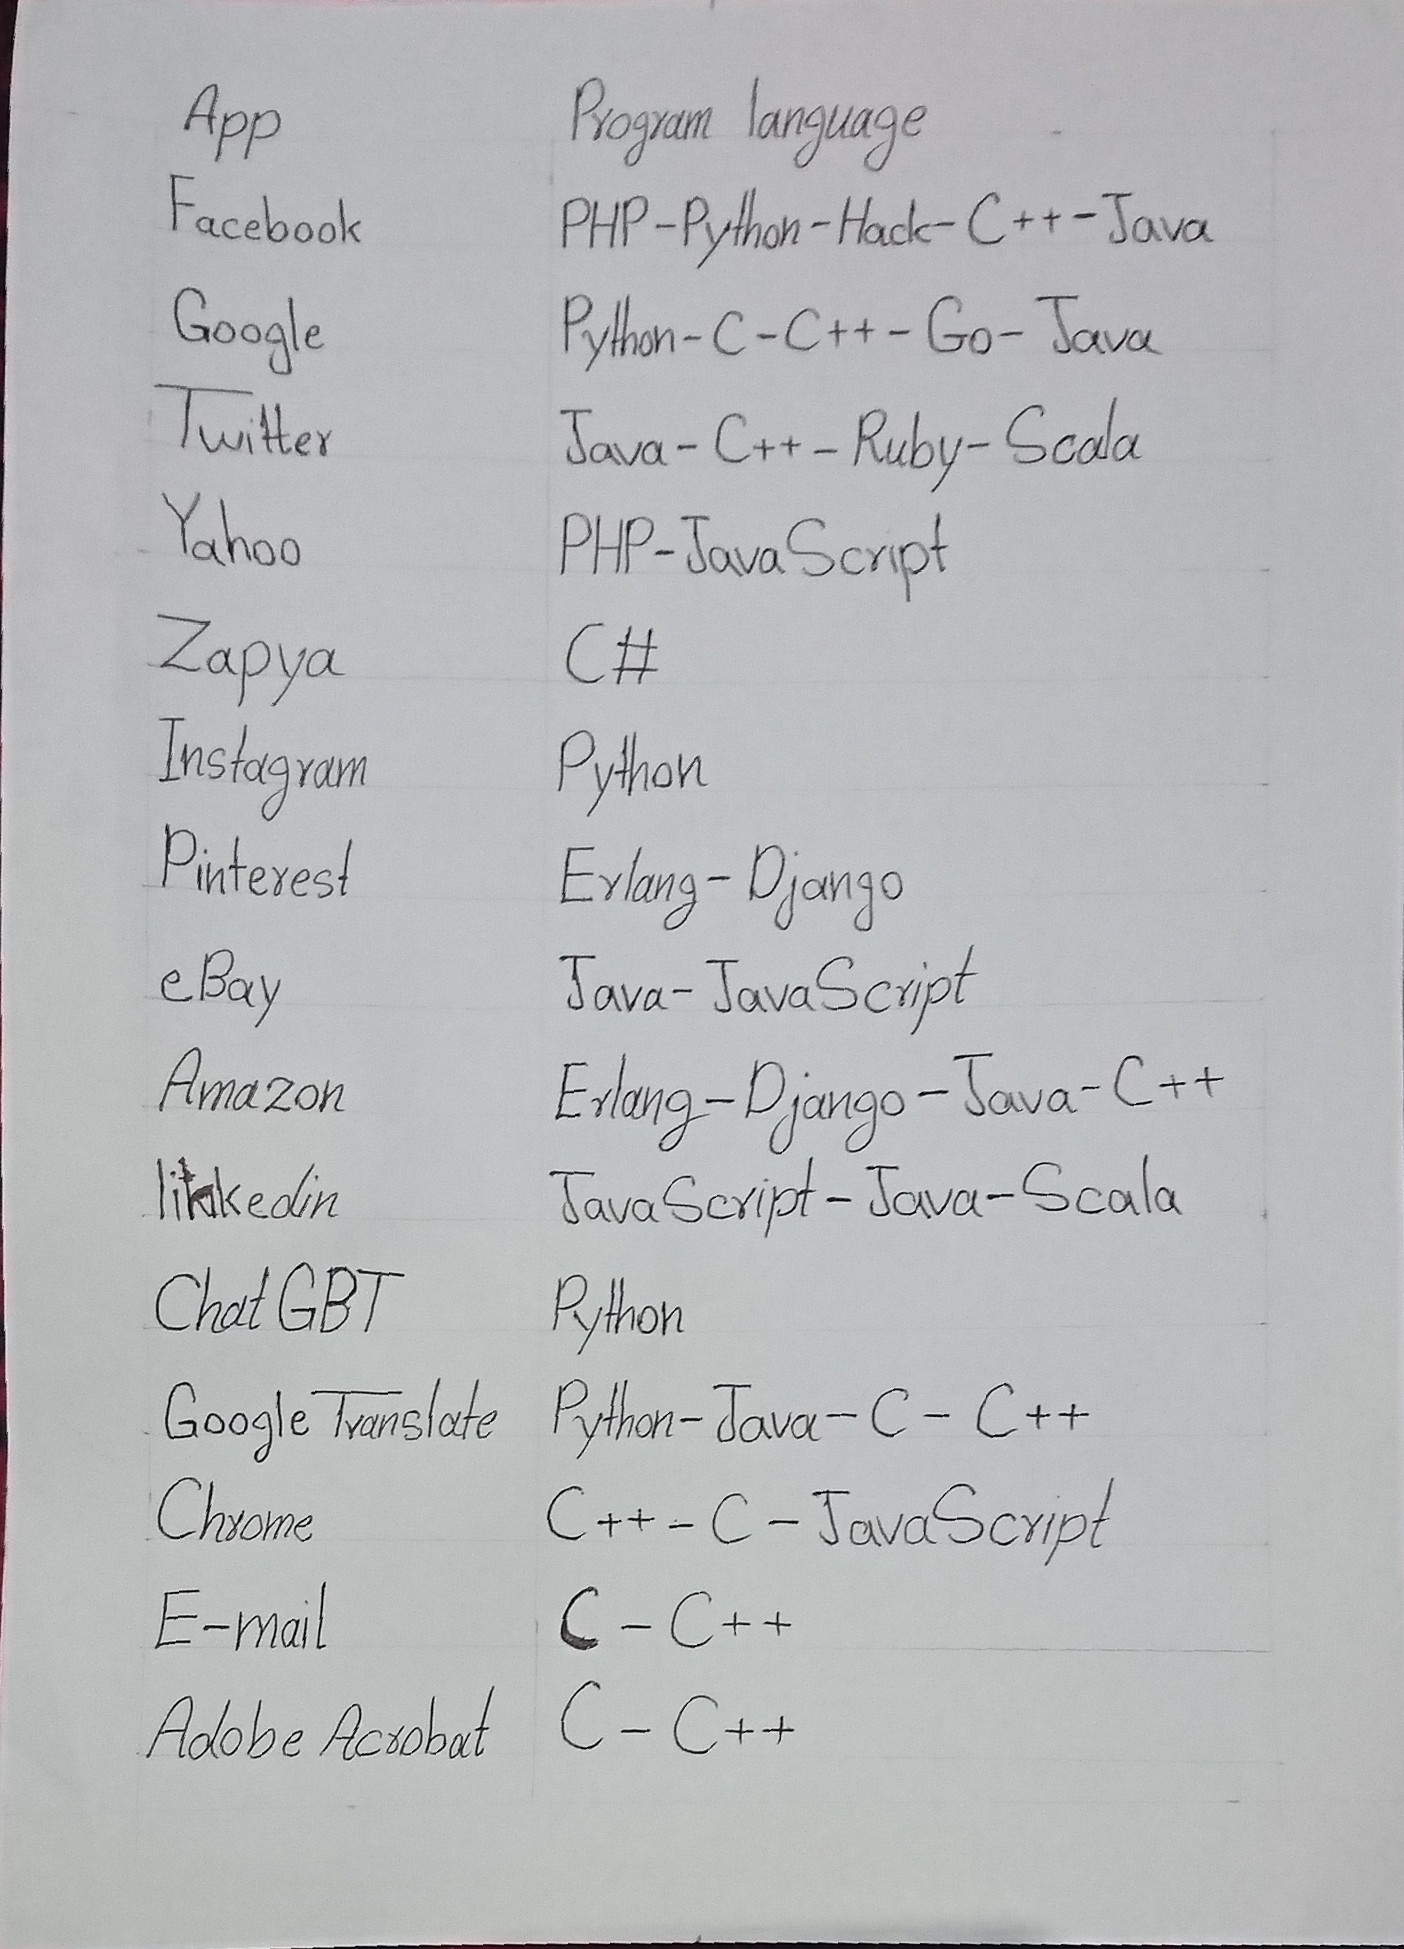 App Program language
Facebook PHP-Python-Hack-C++-Java
Google Python-C-C++-Go-Java
Twitter Java-C++-Ruby-Scala
Yahoo PHP-JavaScript
Zapya C#
Instagram Python
Pinterest Erlang-Django
eBay Java-JavaScript
Amazon Erlang-Django-Java-C++
linkedin JavaScript-Java-Scala
Chat GBT Python
Google Translate Python-Java-C-C++
Chrome C++-C-JavaScript
E-mail C-C++
Adobe Acrobat C-C++